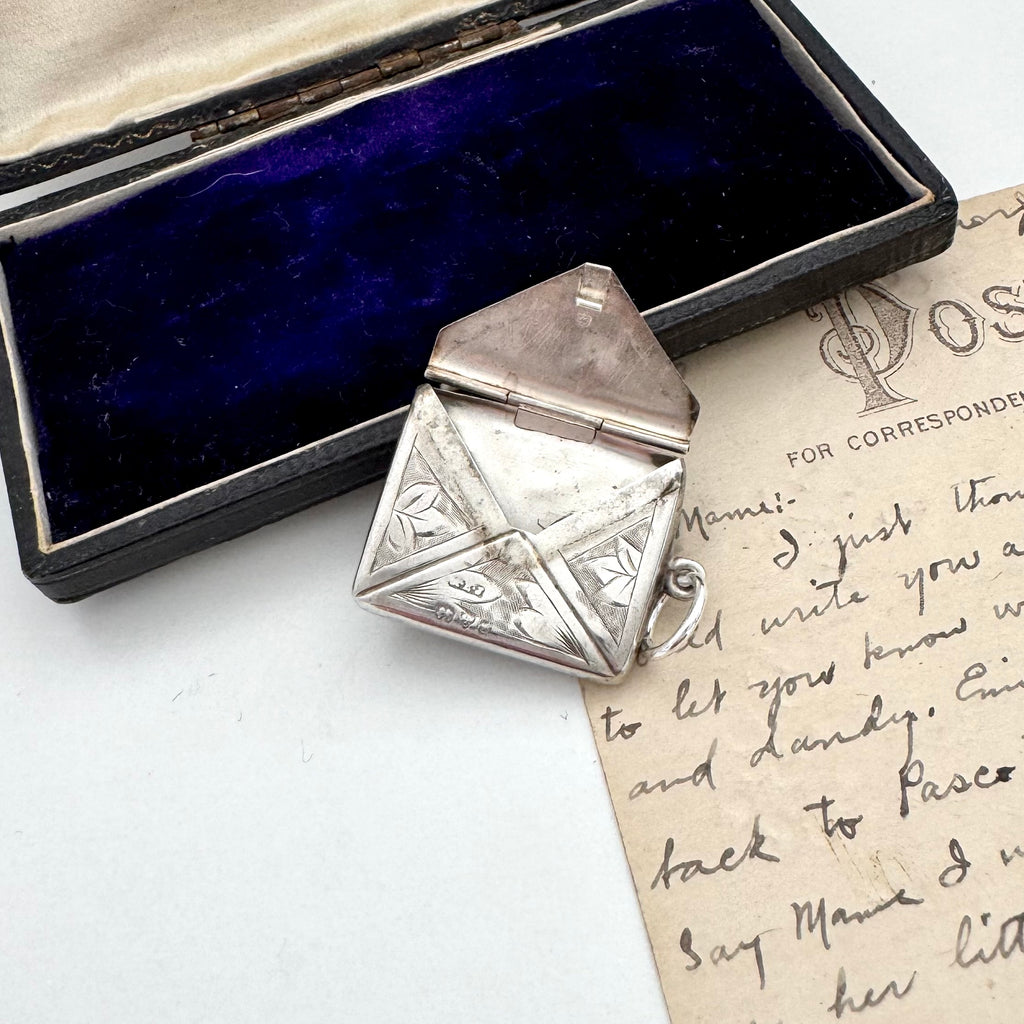 Pos
FOR CORRESPONDEN
Mame:-
I just thou
write you a
to let you know w
and dandy. Emi
back to Pasco
Say Mame I w
her litt